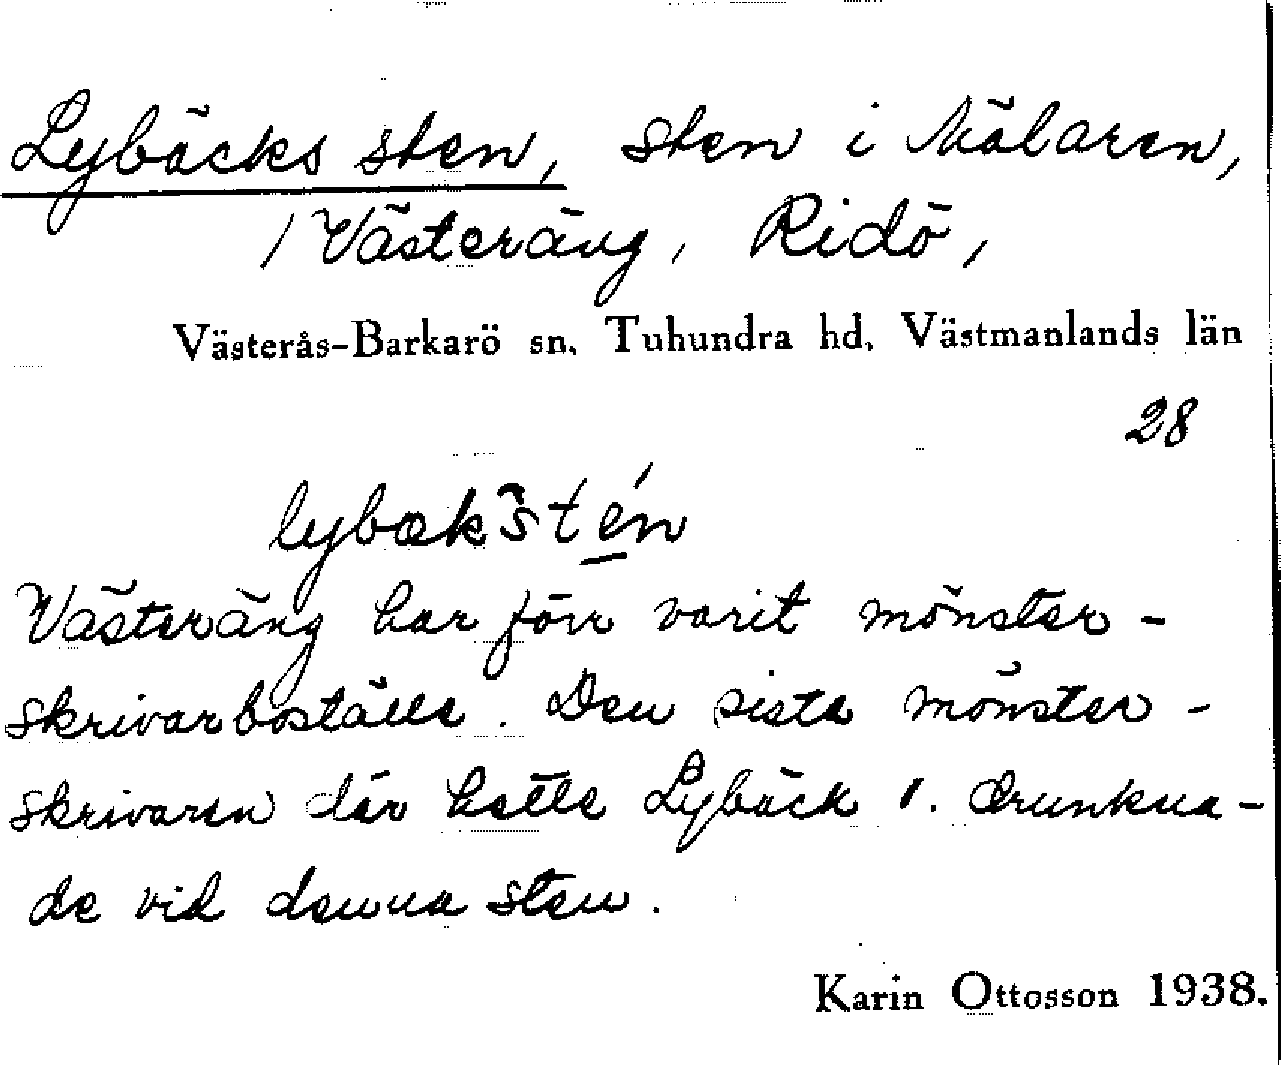 Lybäcks sten, sten i Mälaren,
/ Västeräng, Ridö,
Västerås-Barkarö sn. Tuhundra hd. Västmanlands län
28
lybæks̑tén
Västeräng har förr varit mönster-
skrivarboställe. Den sista mönster-
skrivaren där hette Lybäck. Drunkna-
de vid denna sten.
Karin Ottosson 1938.